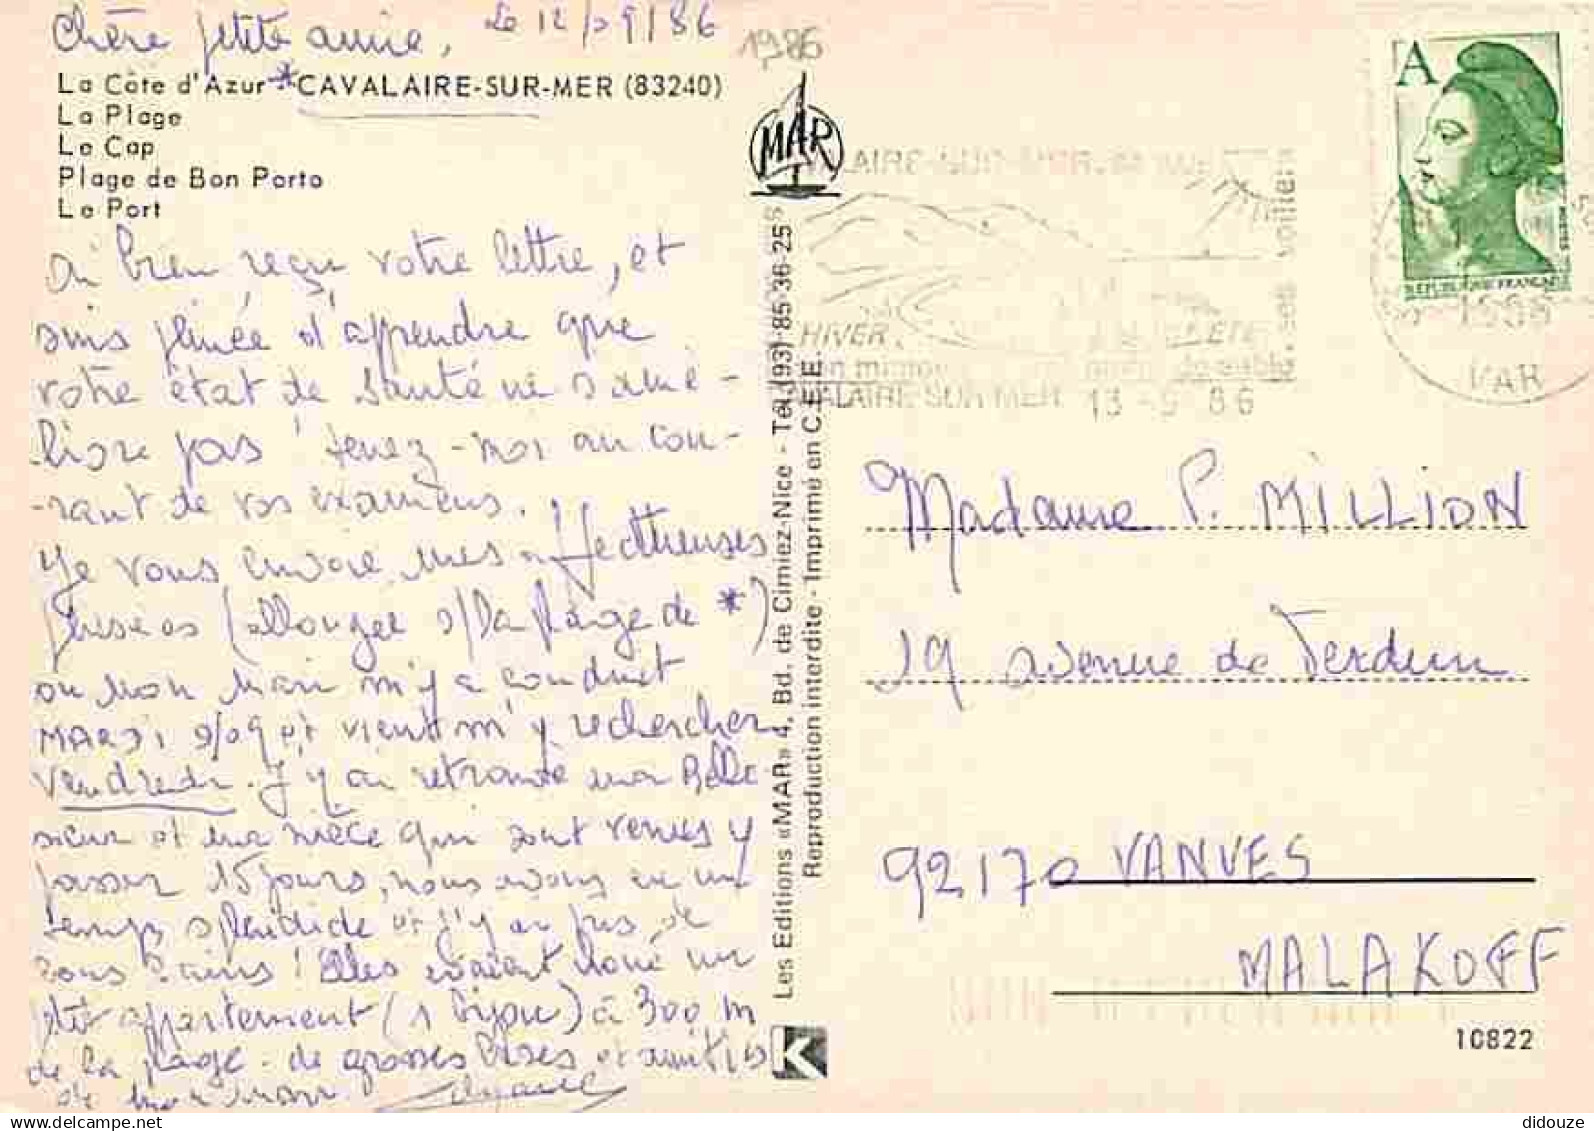 Chère petite amie, Le 12/09/86
1986
La Côte d'Azur * CAVALAIRE-SUR-MER (83240)
La Plage
Le Cap
Plage de Bon Porto
Le Port
Ai bien reçu votre lettre, et
suis peinée d'apprendre que
votre état de santé ne s'amé-
liore pas ! tenez-moi au cou-
-rant de vos examens.
Je vous envoie mes affectueuses
pensées (allongée s/la plage de *)
où mon mari m'y a conduit
MARDI 9/09 et vient m'y rechercher
vendredi. J'y ai retrouvé ma Belle
sœur et ma nièce qui sont venues y
passer 15 jours, nous avons eu un
temps splendide et j'y ai pris de
bons bains ! Elles avaient loué un
ptit appartement (1 bijou) à 300 m
de la plage. de grosses bises et amitiés
de mon mari.
MAR
Les Editions «MAR» 4, Bd. de Cimiez-Nice - Tél. (93) 85-36-25
Reproduction interdite - Imprimé en C.E.E.
K
HIVER
ÉTÉ
SUR MER
13 -9 86
A
RÉPUBLIQUE FRANÇAISE
POSTES
1986
VAR
Madame P. MILLION
19 avenue de Verdun
92170 VANVES
MALAKOFF
10822
delcampe.net
didouze